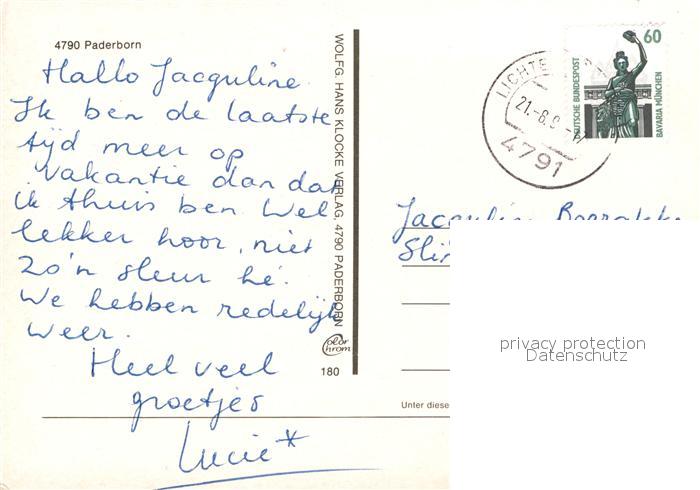 4790 Paderborn
Hallo Jacquline
Ik ben de laatste
tijd meer op
vakantie dan dat
ik thuis ben. Wel
lekker hoor, niet
zo'n sleur hé.
We hebben redelijk
weer.
Heel veel
groetjes
Lucie*
WOLFG. HANS KLOCKE VERLAG, 4790 PADERBORN
Color
Chrom
180
LICHTE
21.-8.9
4791
60
DEUTSCHE BUNDESPOST
BAVARIA MÜNCHEN
Unter diese
privacy protection
Datenschutz